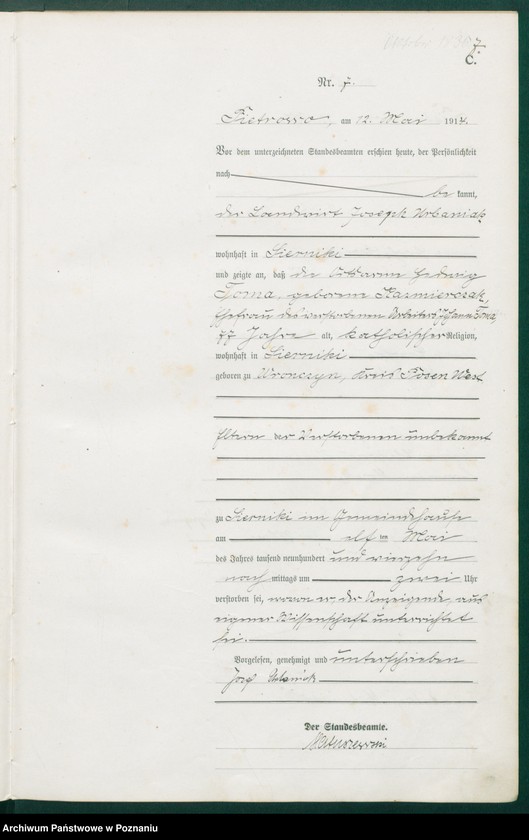 7.
C.
Nr. 7.
Pietrowo, am 12. Mai 1914.
Vor dem unterzeichneten Standesbeamten erschien heute, der Persönlichkeit
nach
be kannt,
der Landwirt Joseph Urbaniak
wohnhaft in Sierniki
und zeigte an, daß die Ortsarme Hedwig
Toma, geborene Kazmierczak,
Ehefrau des verstorbenen Arbeiters Johann Toma,
77 Jahre alt, katholischer Religion,
wohnhaft in Sierniki
geboren zu Wronczyn, Kreis Posen West
Eltern der Verstorbenen unbekannt
zu Sierniki im Gemeindehause
am elf ten Mai
des Jahres tausend neunhundert und vierzehn
nach mittags um zwei Uhr
verstorben sei, wovon er, der Anzeigende, aus
eigener Wissenschaft unterrichtet
sei.
Vorgelesen, genehmigt und unterschrieben
Der Standesbeamte.
Archiwum Państwowe w Poznaniu